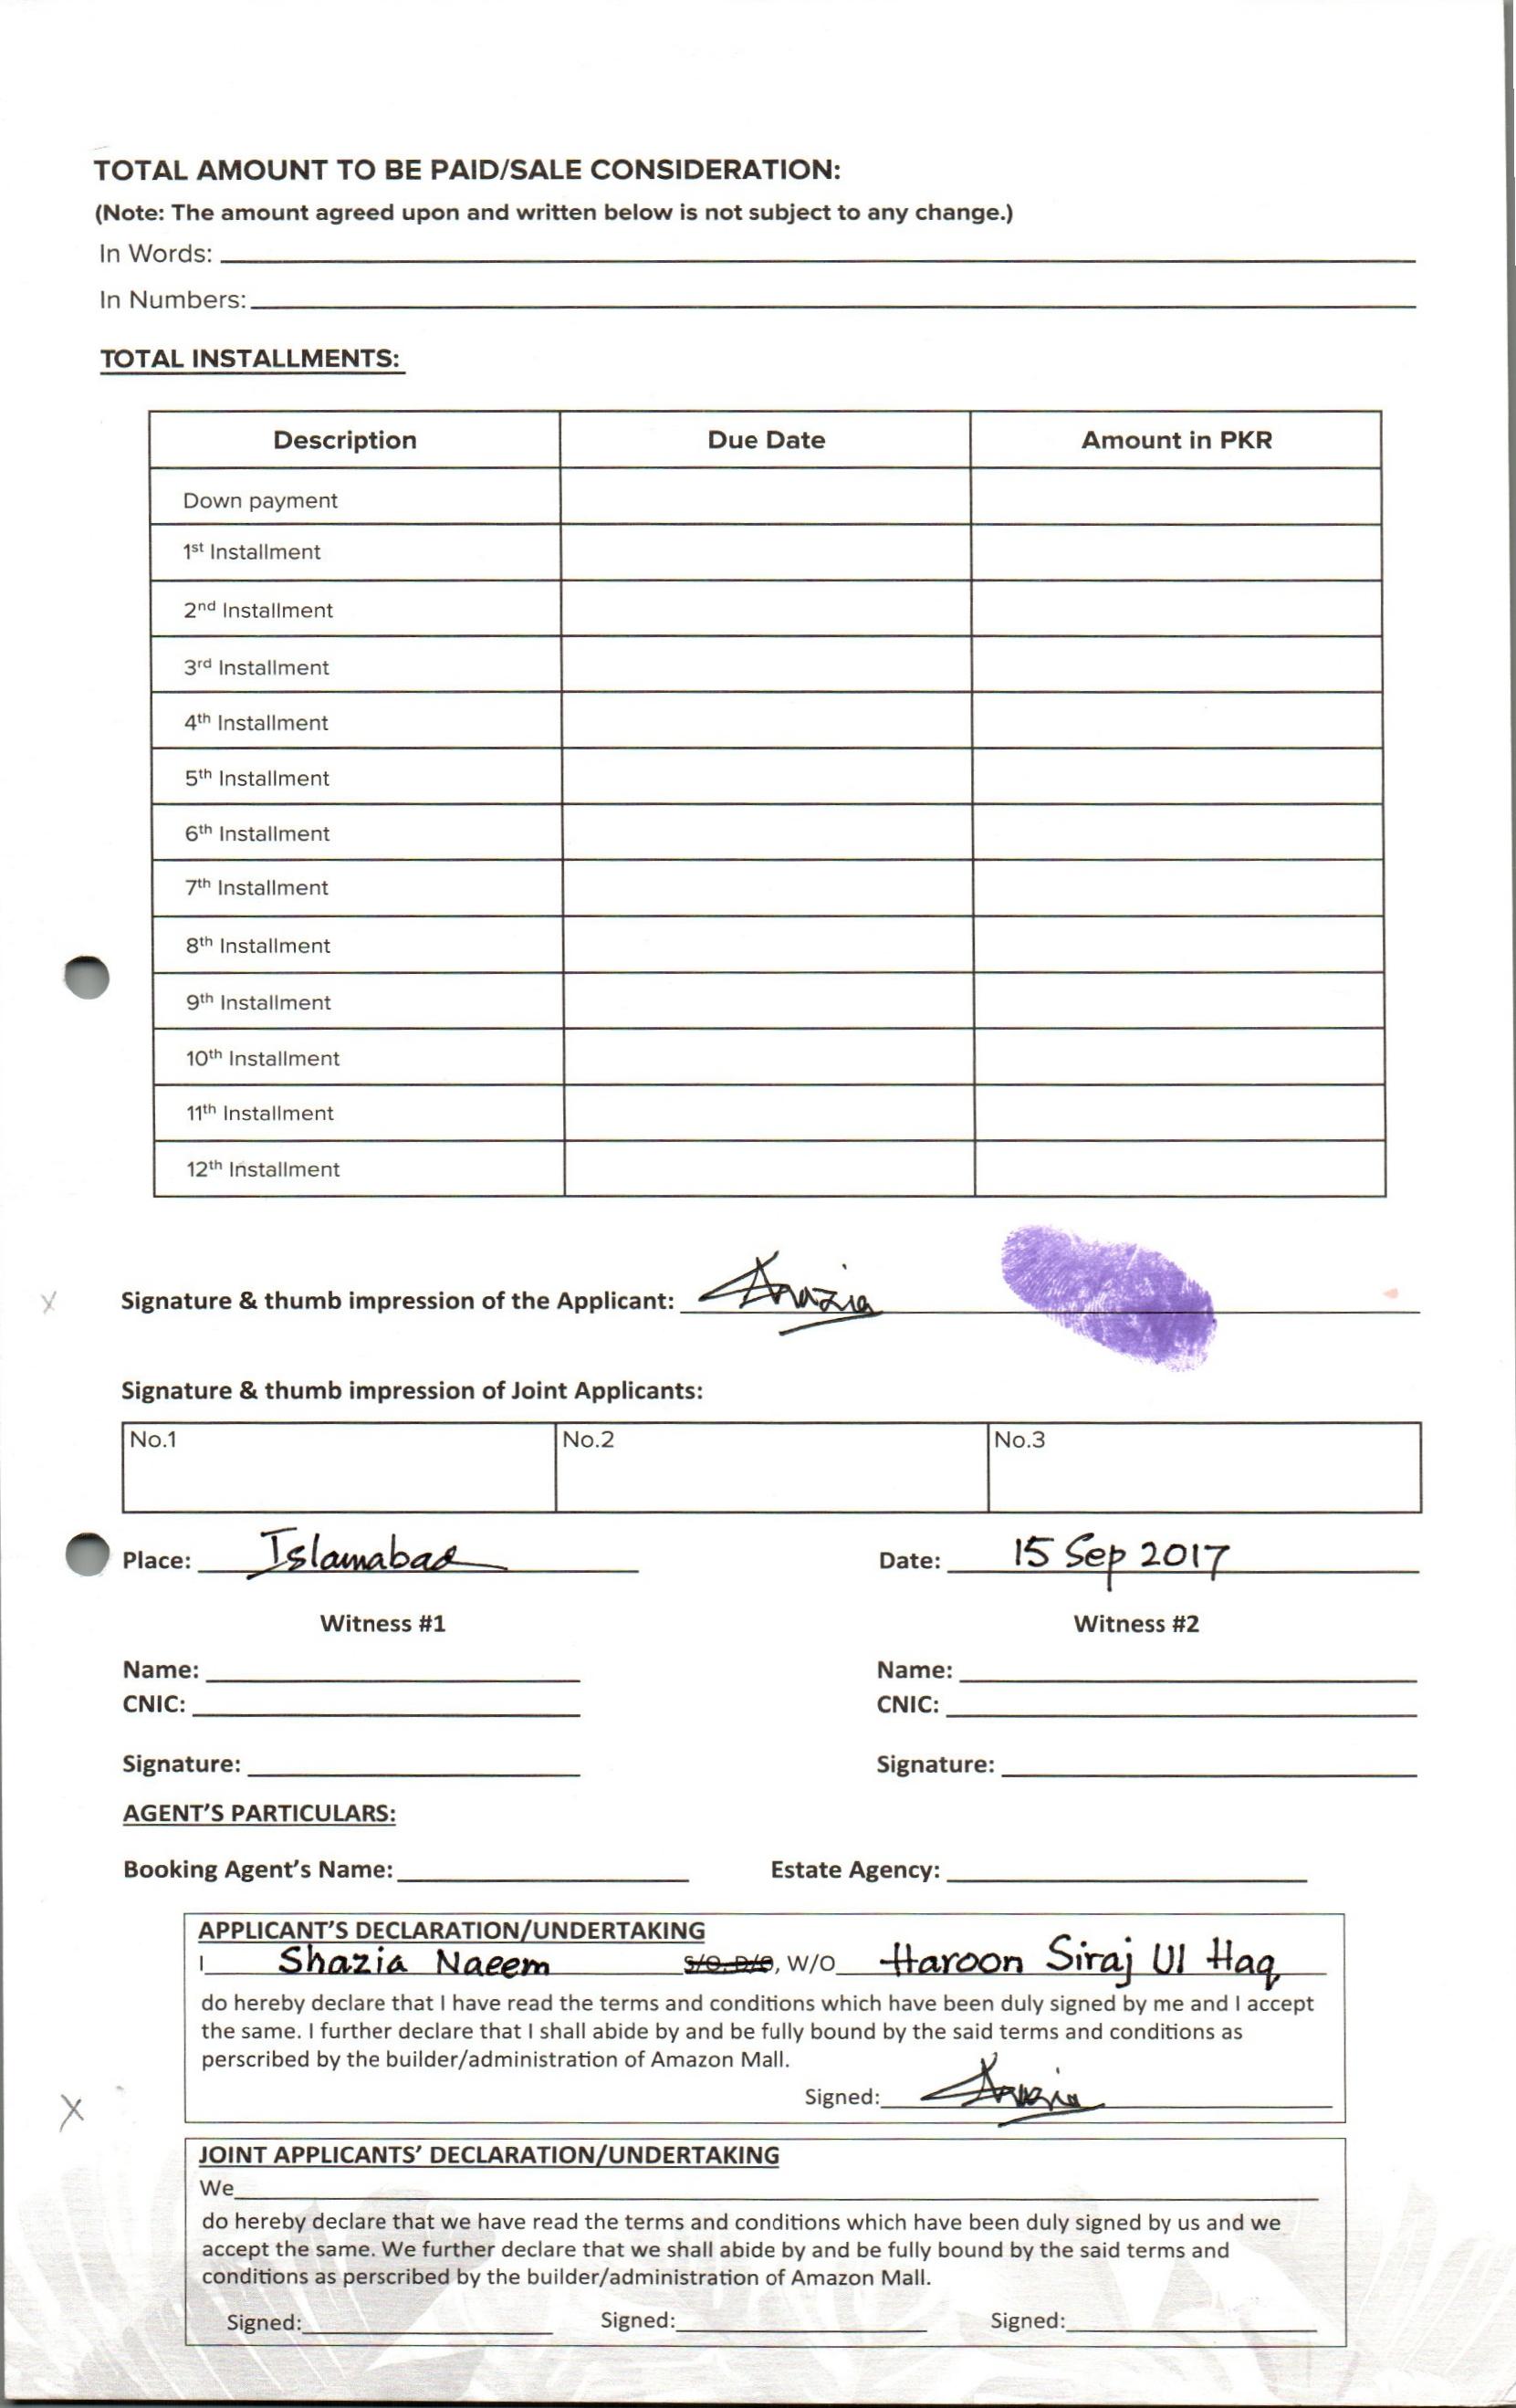 TOTAL AMOUNT TO BE PAID/SALE CONSIDERATION:
(Note: The amount agreed upon and written below is not subject to any change.)
In Words:
In Numbers:
TOTAL INSTALLMENTS:
Description Due Date Amount in PKR
Down payment
1st Installment
2nd Installment
3rd Installment
4th Installment
5th Installment
6th Installment
7th Installment
8th Installment
9th Installment
10th Installment
11th Installment
12th Installment
Signature & thumb impression of the Applicant: Shazia
Signature & thumb impression of Joint Applicants:
No.1 No.2 No.3
Place: Islamabad Date: 15 Sep 2017
Witness #1 Witness #2
Name: Name:
CNIC: CNIC:
Signature: Signature:
AGENT'S PARTICULARS:
Booking Agent's Name: Estate Agency:
APPLICANT'S DECLARATION/UNDERTAKING
I Shazia Naeem S/O, D/O, W/O Haroon Siraj Ul Haq
do hereby declare that I have read the terms and conditions which have been duly signed by me and I accept
the same. I further declare that I shall abide by and be fully bound by the said terms and conditions as
perscribed by the builder/administration of Amazon Mall.
Signed: Shazia
JOINT APPLICANTS' DECLARATION/UNDERTAKING
We
do hereby declare that we have read the terms and conditions which have been duly signed by us and we
accept the same. We further declare that we shall abide by and be fully bound by the said terms and
conditions as perscribed by the builder/administration of Amazon Mall.
Signed: Signed: Signed: